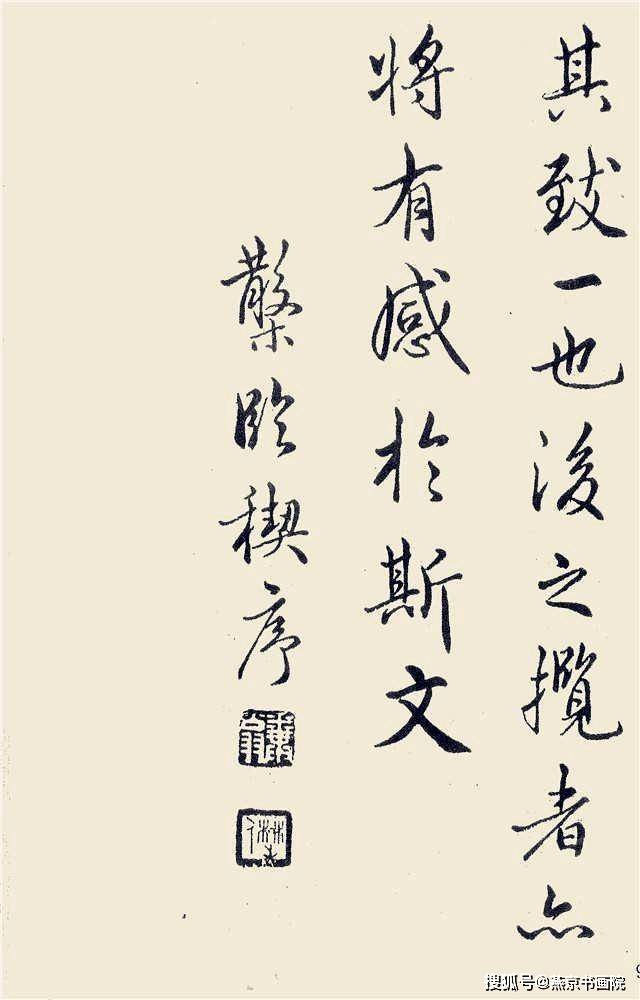 其致一也後之攬者亦
將有感於斯文
散木臨稧序
搜狐号@燕京书画院